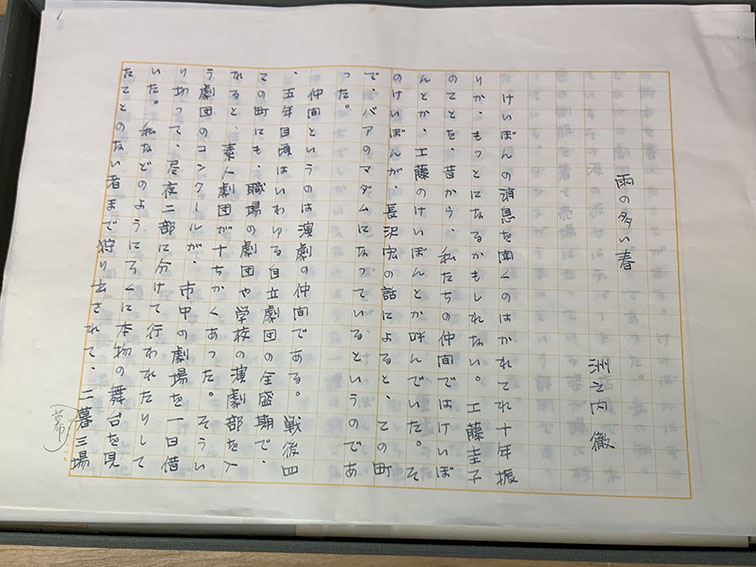 雨の多い春
洲之内徹
けいぼんの消息を聞くのはかれてれ十年振
りか、もっとになるかもしれない。工藤圭子
のことを、昔から、私たちの仲間ではけいぼ
んとか、工藤のけいぼんとか呼んでいた。そ
のけいぼんが、長沢宏の話によると、この町
で、バアのマダムになっているというのであ
った。
仲間というのは演劇の仲間である。戦後四
、五年目頃はいわゆる自立劇団の全盛期で、
この町にも、職場の劇団や学校の演劇部を入
れると、素人劇団が十ちかくあった。そうい
う劇団のコンクールが、市中の劇場を一日借
り切って、昼夜二部に分けて行われたりして
いた。私などのようにろくに本物の舞台を見
たことのない者まで狩り出されて、二暮三場
幕